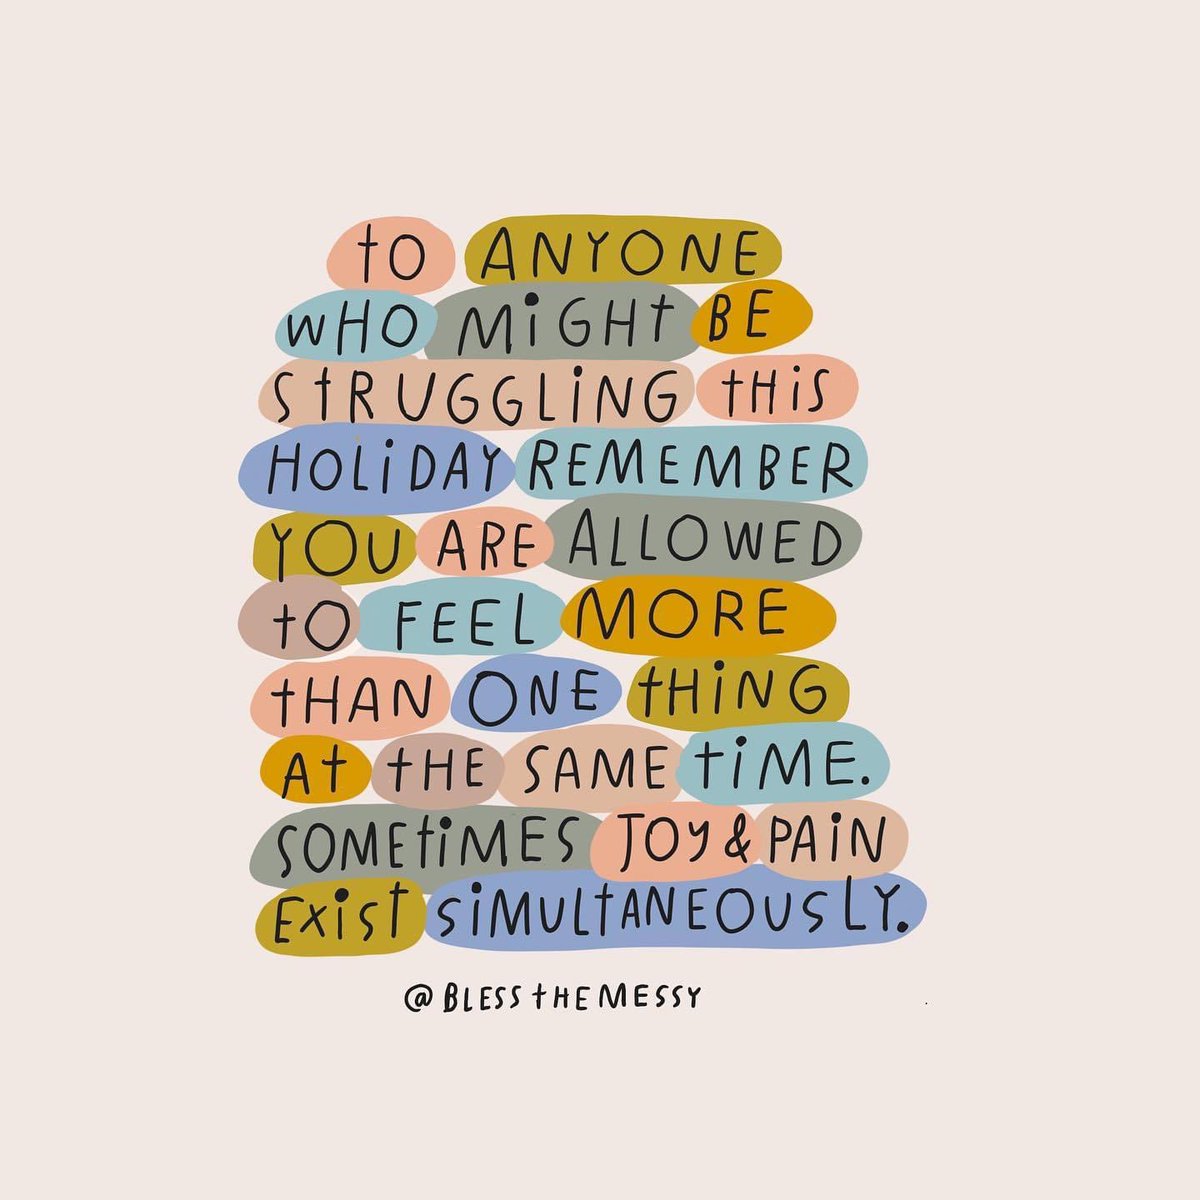 to ANYONE
WHO MiGHt BE
StRUGGLiNG tHiS
HOLiDAY REMEMBER
YOU ARE ALLOWED
tO FEEL MORE
tHAN ONE tHiNG
At tHE SAME tiME.
SOMEtiMES JOY & PAiN
EXiSt SiMULtANEOUSLY.
@BLESStHEMESSY